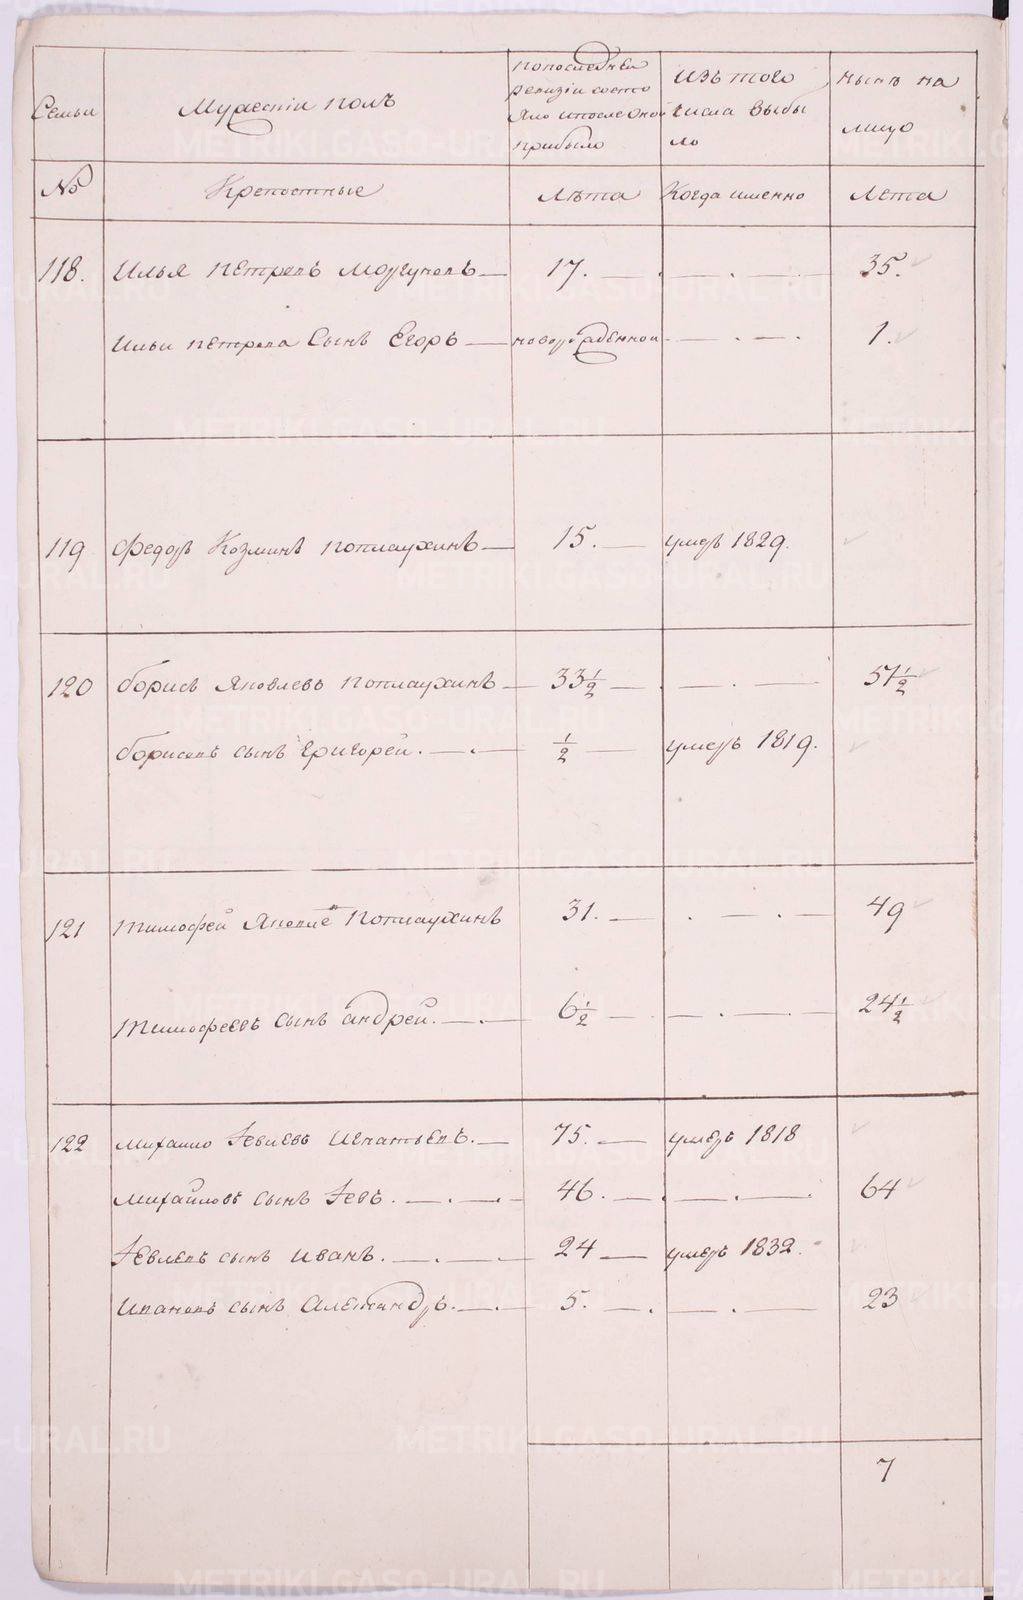 Семьи
Мужескій полъ
по последней ревизіи состояло и после оной прибыло
Изъ того числа выбыло
ныне на лицо
№ Крепостные Лѣта Когда именно Лета
118. Илья Петровъ 17. 35.
Ильи Петрова сынъ Егоръ новорожденной 1.
119 Федоръ Козминъ Поплаухинъ 15. умеръ 1829.
120 Борисъ Яковлевъ Поплаухинъ 33 1/2 51 1/2
Борисовъ сынъ Григорей. 1/2 умеръ 1819.
121 Тимофей Яковлевъ Поплаухинъ 31. 49
Тимофеевъ сынъ Андрей. 6 1/2 24 1/2
122 Михайло Іевлевъ Игнатьевъ. 75. умеръ 1818
Михайловъ сынъ Іевъ. 46. 64
Іевлевъ сынъ Иванъ. 24 умеръ 1832.
Ивановъ сынъ Александръ. 5. 23
7
METRIKI.GASO-URAL.RU